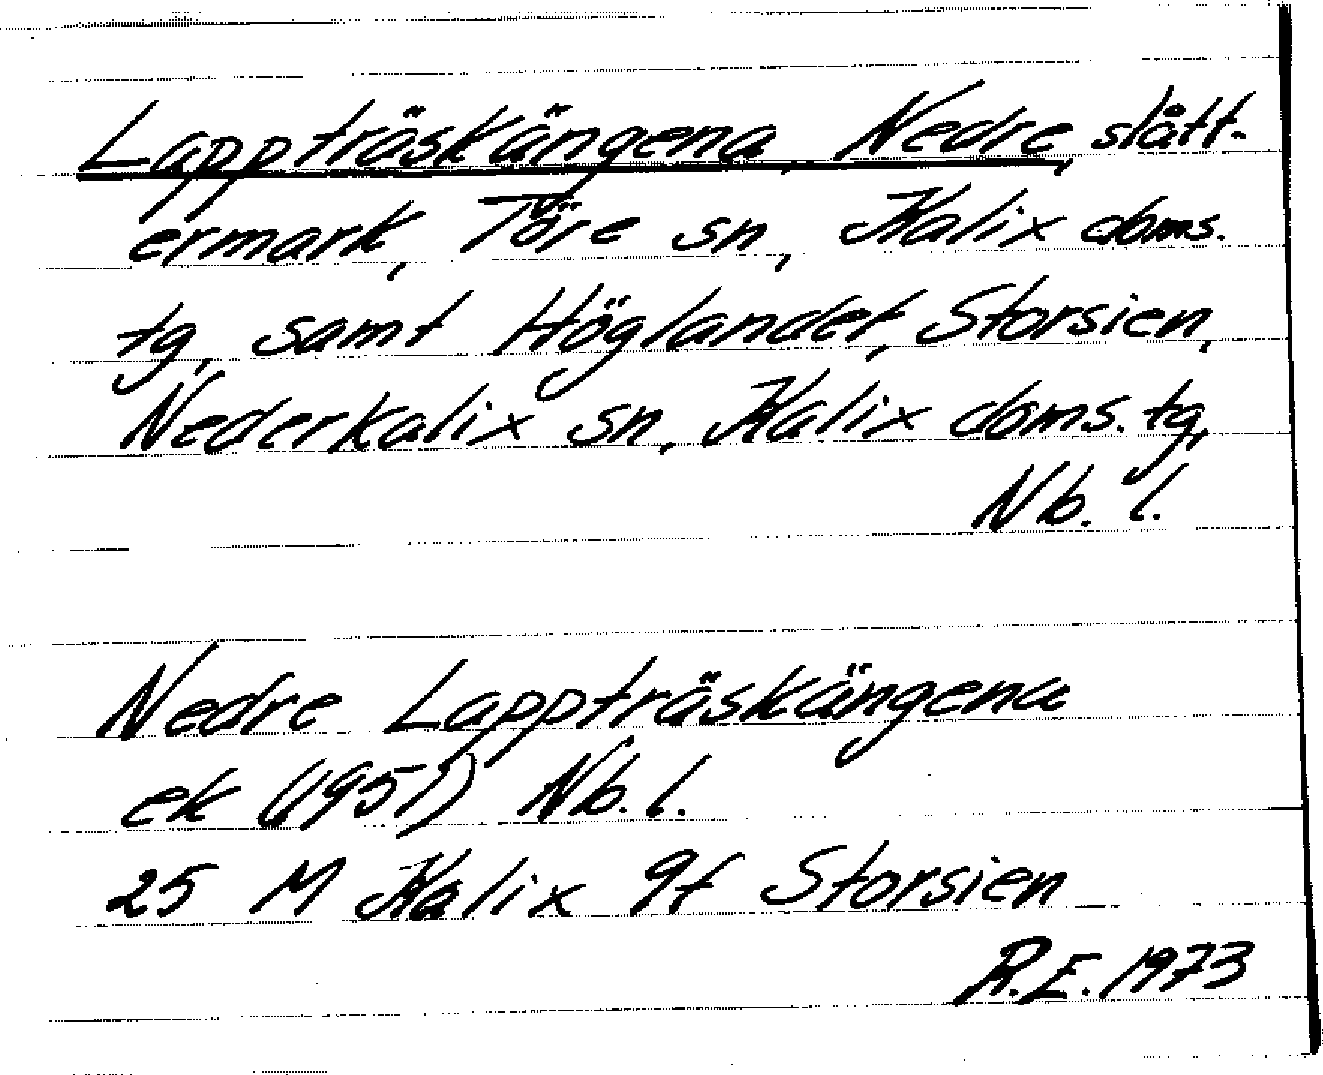 Lappträskängena, Nedre, slått-
ermark, Töre sn, Kalix doms.
tg, samt Höglandet, Storsien,
Nederkalix sn, Kalix doms. tg,
Nb. l.
Nedre Lappträskängena
ek (1951) Nb. l.
25 M Kalix 9f Storsien
R.E. 1973